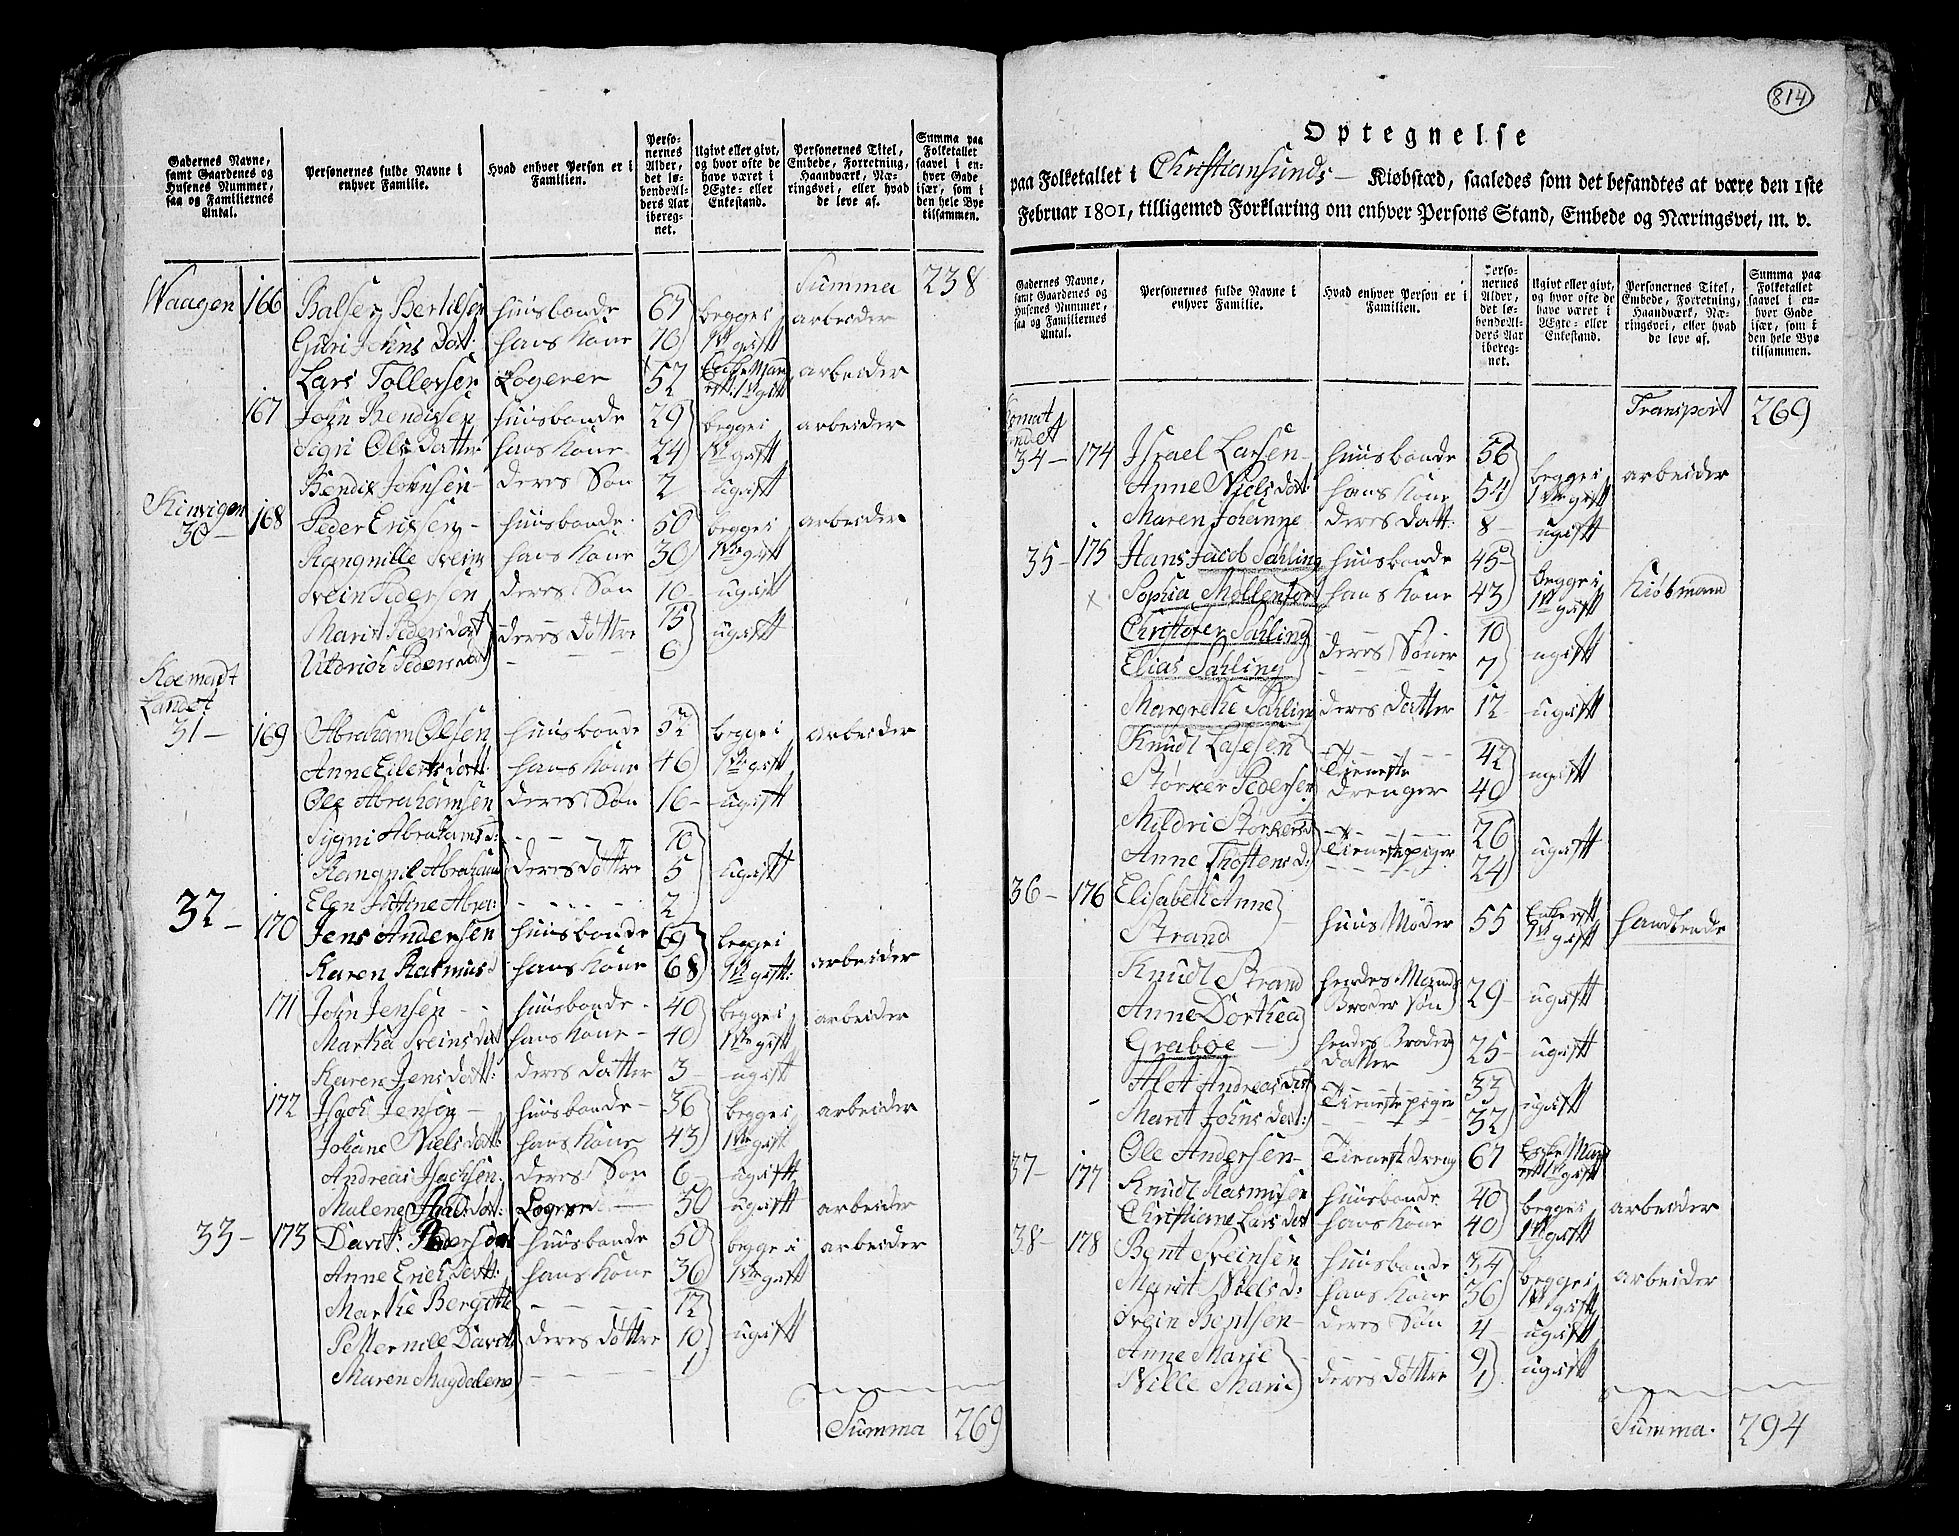 Gadernes Navne, samt Gaardenes og Husenes Nummer, saa og Familiernes Antal.
Personernes fulde Navne i enhver Familie.
Hvad enhver Person er i Familien.
Personernes Alder, det løbende Alders Aar iberegnet.
Ugivt eller givt, og hvor ofte de have været i Ægte- eller Enkestand.
Personernes Titel, Embede, Forretning, Haandværk, Næringsvei, eller hvad de leve af.
Summa paa Folketallet saavel i enhver Gade især, som i den hele Bye tilsammen.
Summa 238
Waagen 166 Balser Bertelsen huusbonde 67 begge i arbeider
Guri Johns Dat: hans Kone 70 1ste gift
Lars Tollevsen Logerer 52 Enke Mand eft: 1ste gift arbeider
167 John Bendixsen huusbonde 29 begge i arbeider
Signi Ols Datter hans Kone 24 1ste gift
Bendix Johnsen deres Søn 2 ugift
30 168 Peder Erichsen huusbonde 50 begge i arbeider
Rangnille Svein hans Kone 30 1ste gift
Svein Pedersen deres Søn 10 ugift
Marit Peders Dat 15
deres Døttre ugift
Peders Dat 6
Landet
31 169 Abraham Olsen huusbonde 52 begge i arbeider
Anne Eilerts datt: hans Kone 46 1ste gift
Ole Abrahamsen deres Søn 16 ugift
Sygni Abrahams d: 10
Rangnil Abrahams deres døttre 5 ugift
Elen Abra: 2
32 170 Jens Andersen huusbonde 69 begge i arbeider
Karen Rasmus d hans Kone 68 1ste gift:
171 John Jensen huusbonde 40 begge i arbeider
Martha Sveins dat hans Kone 40 1ste gift
Karen Jens datt: deres datter 3 ugift
172 Isach Jensen huusbonde 36 begge i arbeider
Johane Niels datt: hans Kone 43 1ste gift
Andreas Isachsen deres Søn 6 ugift
Malene dat: Logerer 50 ugift arbeider
33 173 Davit: Pedersen huusbonde 50 begge i arbeider
Anne Erich datt: hans Kone 36 1ste gift
Marthe Bergitte 12
Petternille Davit deres døttre 10 ugift
Maren Magdalene 1
Summa 269
814
Optegnelse
paa Folketallet i Christiansunds Kiøbstæd, saaledes som det befandtes at være den 1ste
Februar 1801, tilligemed Forklaring om enhver Persons Stand, Embede og Næringsvei, m. v.
Gadernes Navne, samt Gaardenes og Husenes Nummer, saa og Familiernes Antal.
Personernes fulde Navne i enhver Familie.
Hvad enhver Person er i Familien.
Personernes Alder, det løbende Alders Aar iberegnet.
Ugivt eller givt, og hvor ofte de have været i Ægte- eller Enkestand.
Personernes Titel, Embede, Forretning, Haandværk, Næringsvei, eller hvad de leve af.
Summa paa Folketallet saavel i enhver Gade især, som i den hele Bye tilsammen.
Transport 269
34 174 Israel Larsen huusbonde 56 begge i arbeider
Anne Niels dat: hans Kone 54 1ste gift
Maren Johanne deres datt: 8 ugift
35 175 Hans Jacob Sahling huusbonde 45 begge i Kiøbmand
x Sophia hans Kone 43 1ste gift
Christofer Sahling 10
deres Sønner ugift
Elias Sahling 7
Margrethe Sahling deres datter 12 ugift
Knudt Lassesen 42
Tieneste drenger ugift
Størker Pedersen 40
Mildri Størkers d 26
Tienestepiger ugift
Anne Thostens d: 24
36 176 Elisabeth Anne Strand huus Moder 55 Enke eft 1ste gift handlende
Knudt Strand hendes Mands Broder Søn 29 ugift
Anne Dorthea Graboe hendes Broder datter 25 ugift
Alet Andreas dat 33
Tienestepiger ugift
Marit Johns dat: 32
37 177 Ole Andersen Tieneste dreng 67 Enke Mand eft 1ste gift
Knudt Rasmusen huusbonde 40 begge i arbeider
Christiane Lars dat hans Kone 40 1ste gift
38 178 Bent Sveinsen huusbonde 34 begge i arbeider
Marit Niels d: hans Kone 36 1ste gift
Svein Bentsen deres Søn 4 ugift
Anne Marie 9
deres døttre ugift
Nille Marie 1
Summa 294